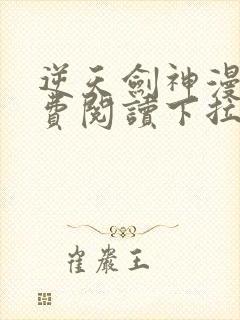 逆天劍神漫
費閱讀下拉
崔巖王